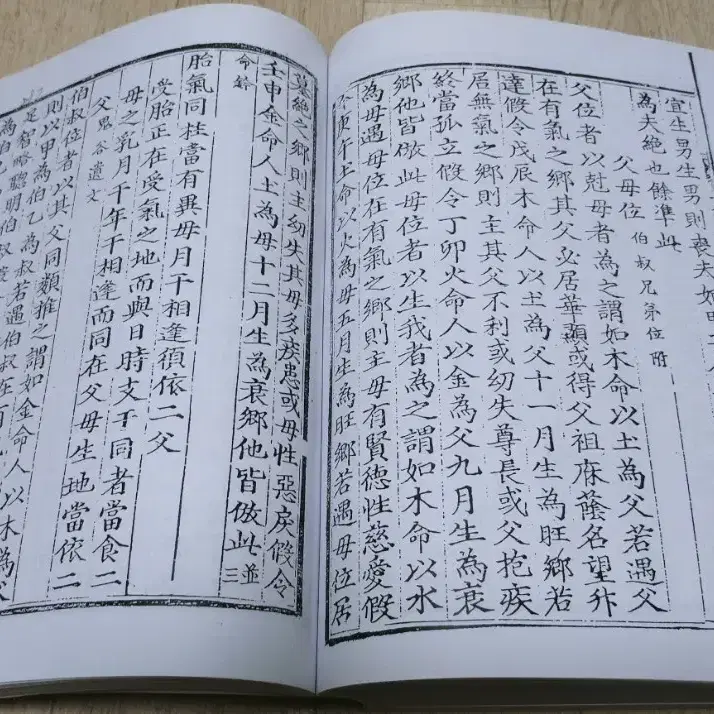 宜生男生男則喪夫如甲
為夫絶也餘準此
父母位 伯叔兄弟位附
父位者以尅母者為之謂如木命以土為父若遇父
在有氣之鄉其父必居華顯或得父祖庥蔭名望升
達假令戊辰木命人以土為父十一月生為旺鄉若
居無氣之鄉則主其父不利或幼失尊長或父抱疾
終當孤立假令丁卯火命人以金為父九月生為衰
鄉他皆倣此母位者以生我者為之謂如木命以水
為母遇母位在有氣之鄉則主母有賢德性慈愛假
令庚午土命以火為母五月生為旺鄉若遇母位居
墓絶之鄉則主幼失其母多疾患或母性惡戾假令
壬申金命人土為母十二月生為衰鄉他皆倣此並三
命鈐
胎氣同柱當有異母月干相逢須依二父
受胎正在受氣之地而與日時支干同者當食二
母之乳月干年干相逢而同在父母生地當依二
父鬼谷遺文
伯叔位者以其父同類推之謂如金命人以木為父
則以甲為伯乙為叔若遇伯叔在有
足智略聰明伯叔
為伯